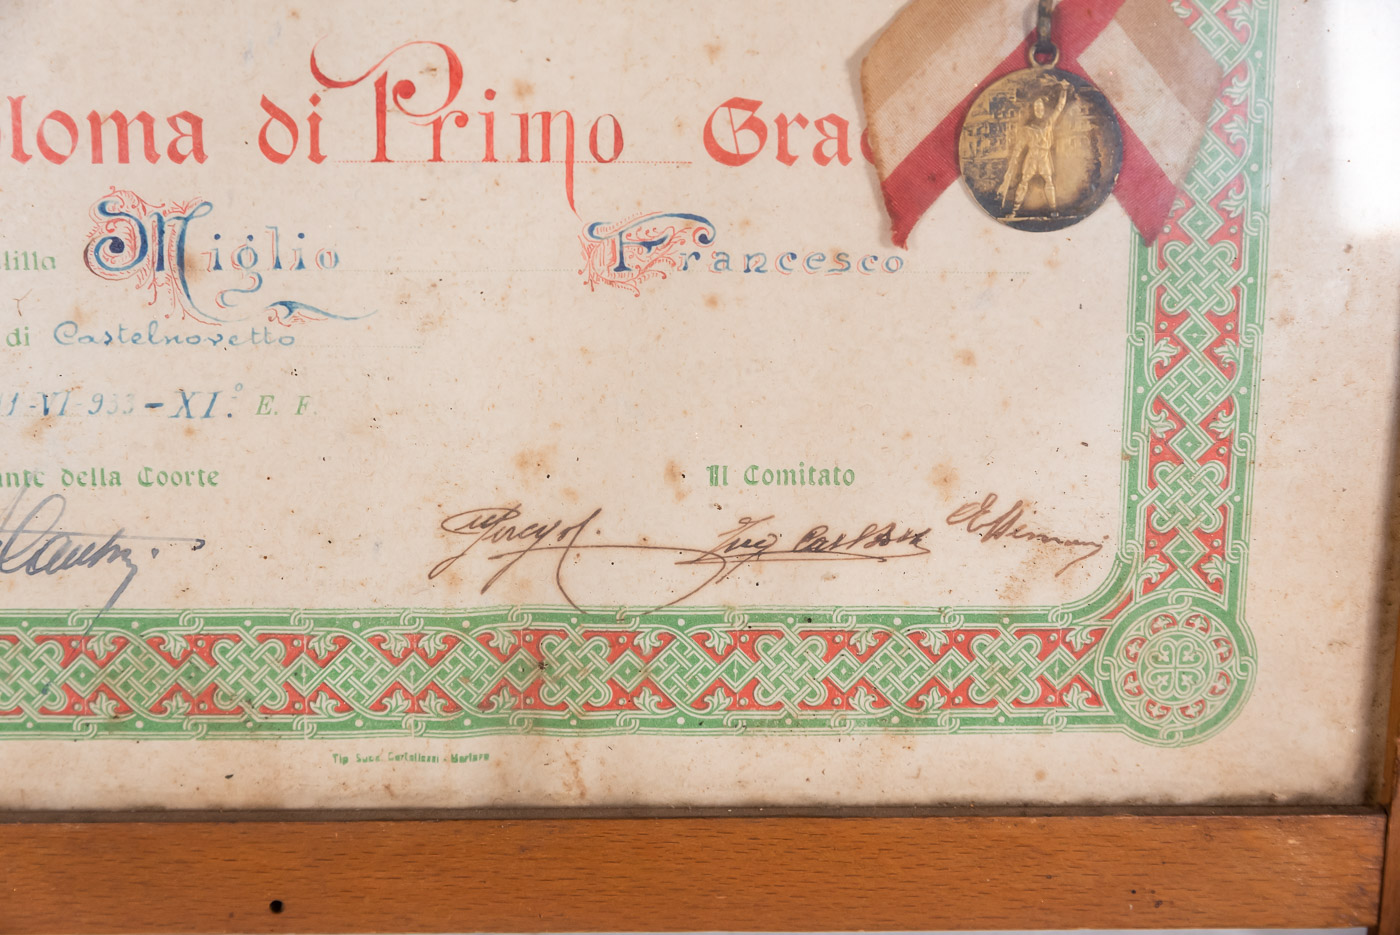 ploma di Primo Grad
lilla Miglio Francesco
di Castelnovetto
11-VI-933-XI.° E. F.
ante della Coorte Il Comitato
Tip. Succ. Cortellezzi - Mortara